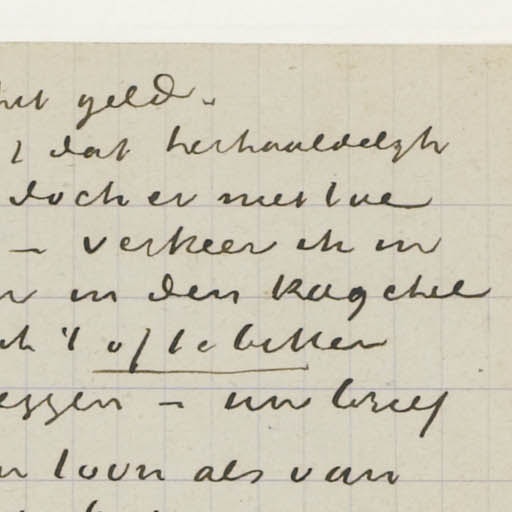 het geld.
dat herhaaldelijk
doch er niet toe
– verkeer ik in
in den kagchel
ik 't op te bikken
eggen – uw brief
toon als van